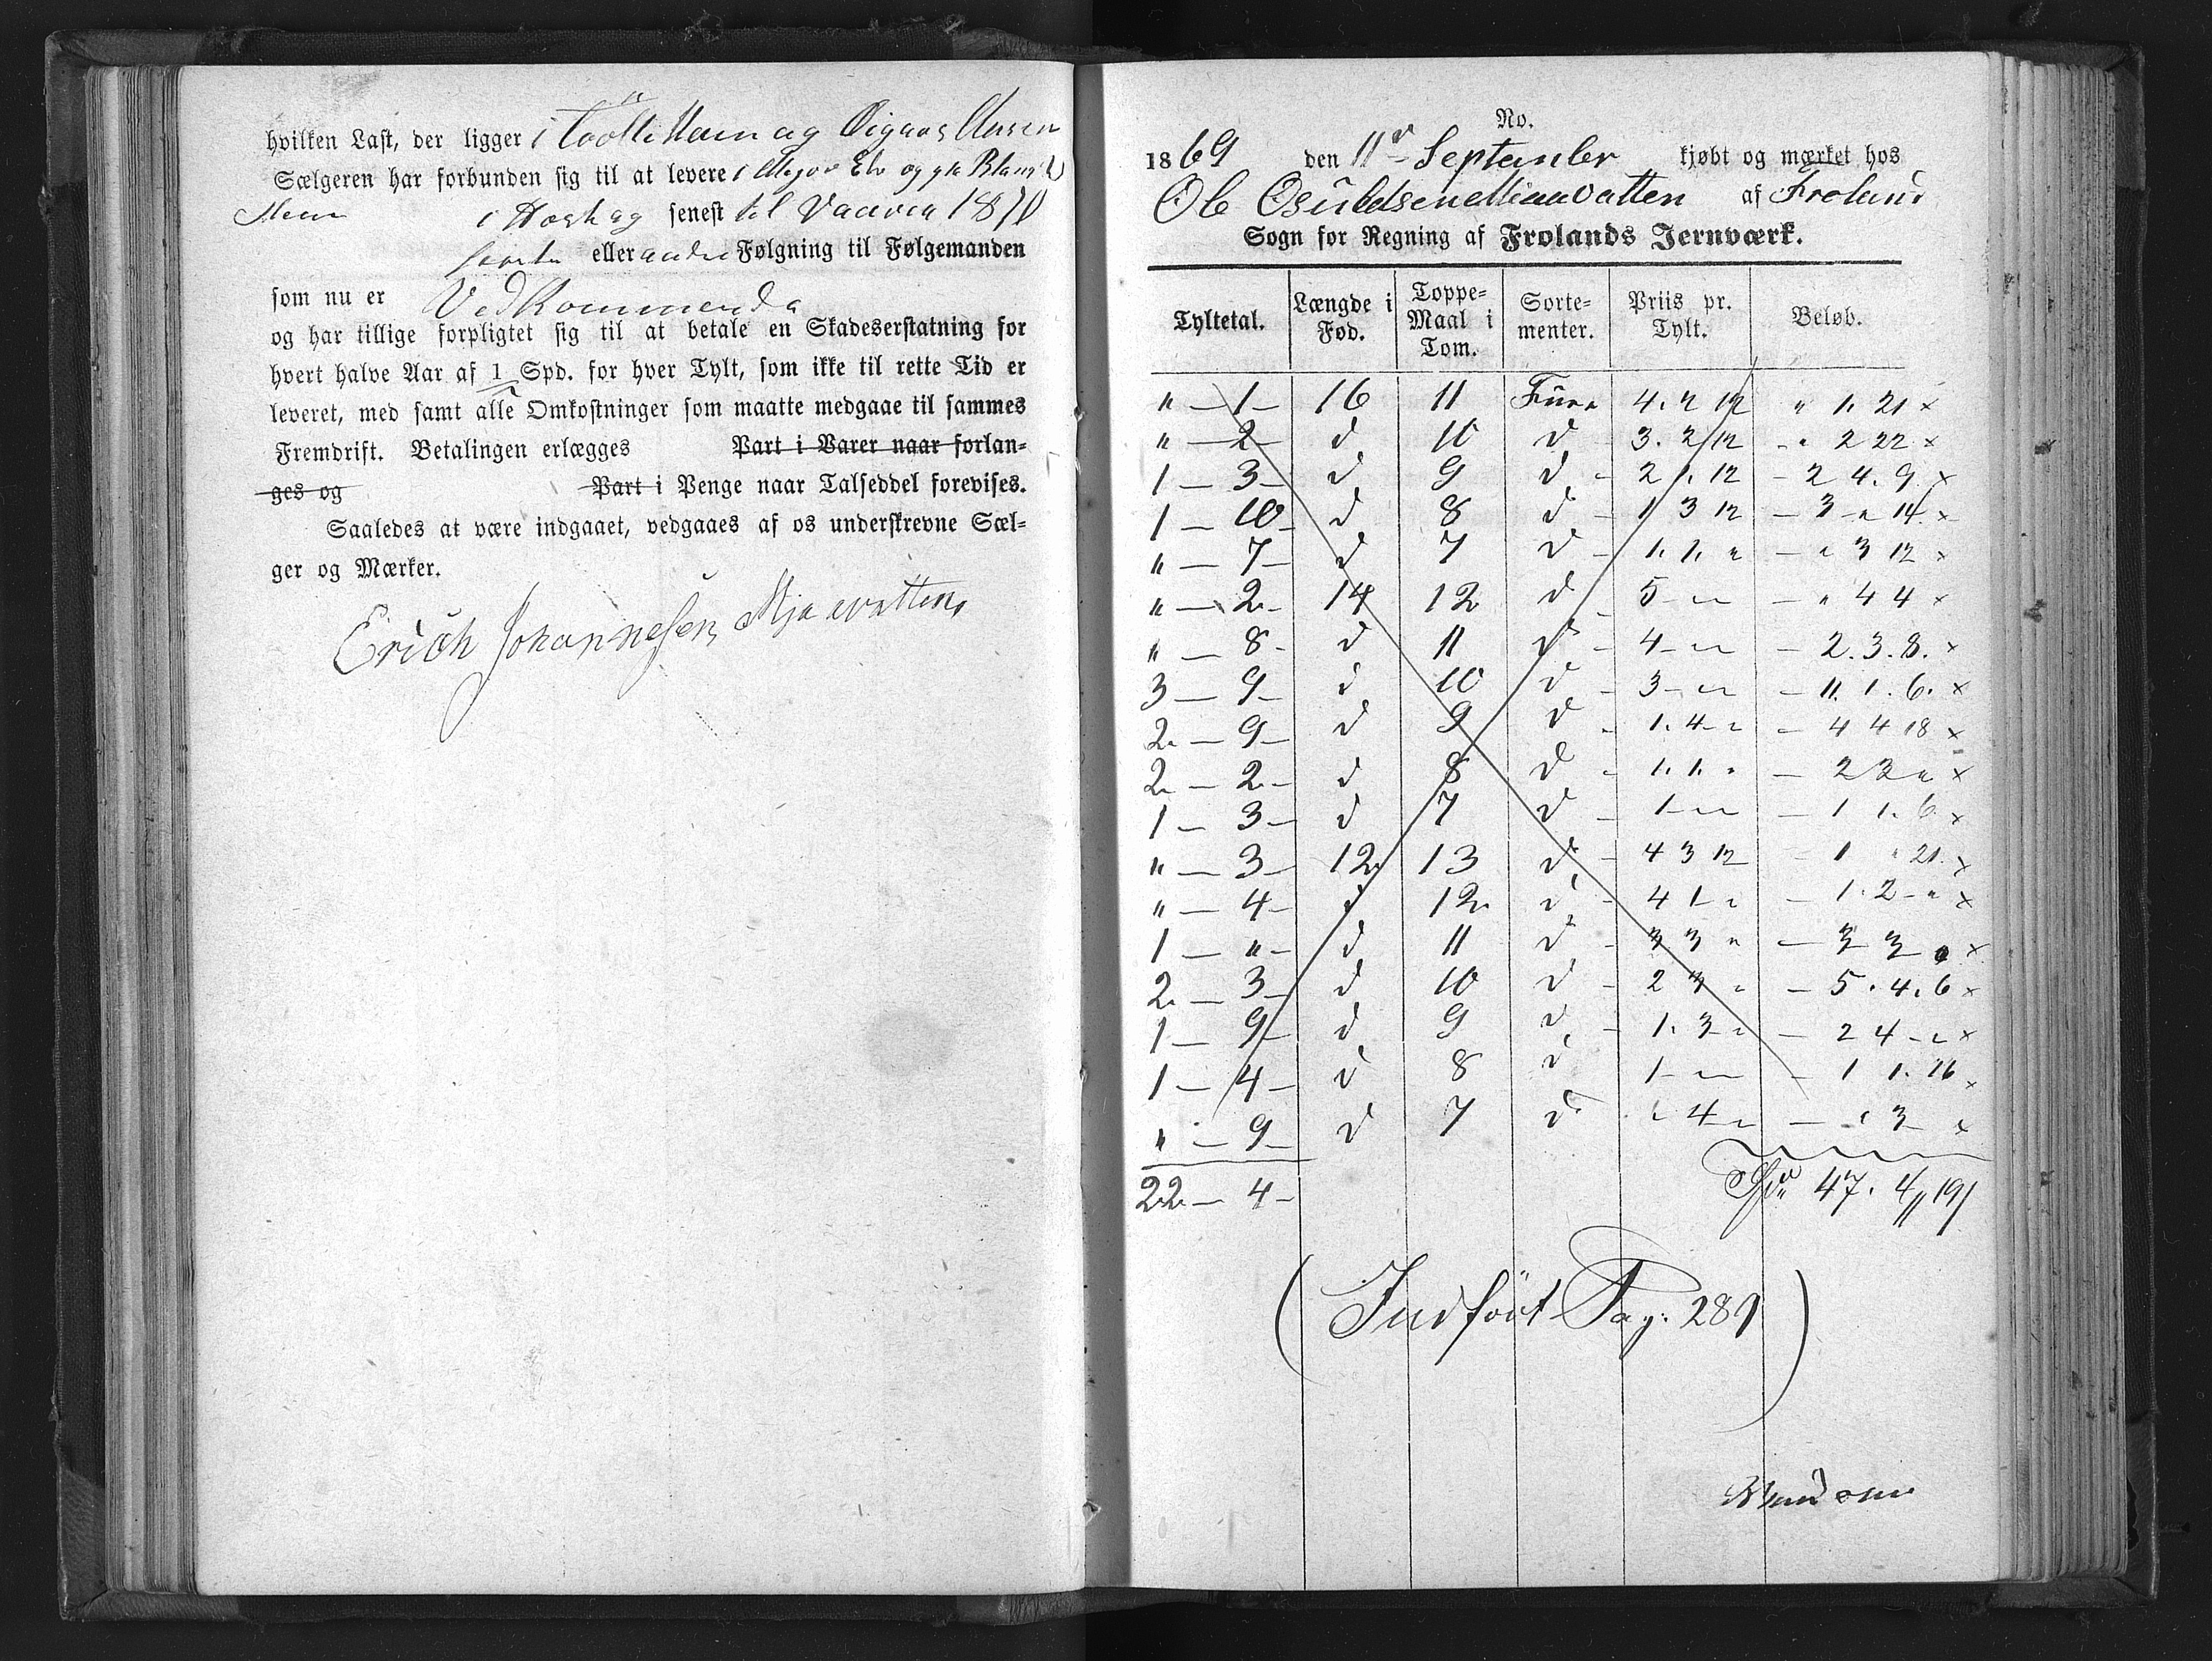 hvilken Last, der ligger i og
Sælgeren har forbunden sig til at levere i Elv og
senest til Vaaren 1870
eller andre Følgning til Følgemanden
som nu er Vedkommende
og har tillige forpligtet sig til at betale en Skadeserstatning for
hvert halve Aar af 1 Spd. for hver Tylt, som ikke til rette Tid er
leveret, med samt alle Omkostninger som maatte medgaae til sammes
Fremdrift. Betalingen erlægges Part i Varer naar forlan-
ges og Part i Penge naar Talseddel forevises.
Saaledes at være indgaaet, vedgaaes af os underskrevne Sæl-
ger og Mærker.
Erich Johannesen Mjaavatten
No.
1869 den 11te September kjøbt og mærket hos
Ole Osuldsen Miaavatten af Froland
Sogn for Regning af Frolands Jernværk.
Tyltetal. Længde i Fød. Toppe-Maal i Tom. Sorte-menter. Priis pr. Tylt. Beløb.
" — 1 — 16 11 Furu 4. 2 12 " 1. 21 ×
" — 2 — d 10 d - 3. 2 12 - " 2 22 ×
1 — 3 — d 9 d - 2 1. 12 - 2 4. 9 ×
1 — 10 — d 8 d - 1 3 12 — 3 - " 14 ×
" — 7 — d 7 d - 1. 1. " — " 3 12 ×
" — 2 - 14 12 d - 5 - " " — " 4 4 ×
" — 8 - d 11 d - 4 - " " — 2. 3. 8. ×
3 — 9 — d 10 d - 3 - " " — 11. 1. 6. ×
2 — 9 — d 9 d - 1. 4 - " — 4 4 18 ×
2 — 2 — d 8 d - 1. 1. " — 2 3 " ×
1 — 3 — d 7 d - 1 - " " — 1 1. 6 ×
" — 3 — 12 13 d - 4 3 12 - 1 " 21. ×
" — 4 — d 12 d - 4 1 - " — 1. 2 - " ×
1 — " — d 11 d - 3 3 " — 3 3 " ×
2 — 3 — d 10 d - 2 3 " — 5. 4. 6 ×
1 — 9 — d 9 d - 1. 3 - " — 2 4 - " ×
1 — 4 — d 8 d 1 - " " - 1 1. 16 ×
" — 9 — d 7 d " 4 - " — " 3 ×
22 — 4 - Spd 47. 4 " 19
(Indført Pag: 289)